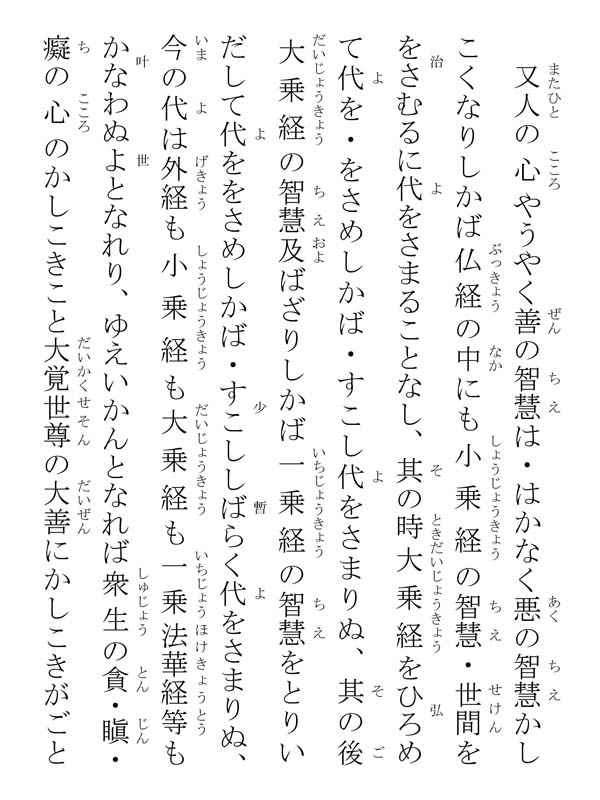 又人の心やうやく善の智慧は・はかなく悪の智慧かし
こくなりしかば仏経の中にも小乗経の智慧・世間を
をさむるに代をさまることなし、其の時大乗経をひろめ
て代を・をさめしかば・すこし代をさまりぬ、其の後
大乗経の智慧及ばざりしかば一乗経の智慧をとりい
だして代ををさめしかば・すこししばらく代をさまりぬ、
今の代は外経も小乗経も大乗経も一乗法華経等も
かなわぬよとなれり、ゆえいかんとなれば衆生の貪・瞋・
癡の心のかしこきこと大覚世尊の大善にかしこきがごと